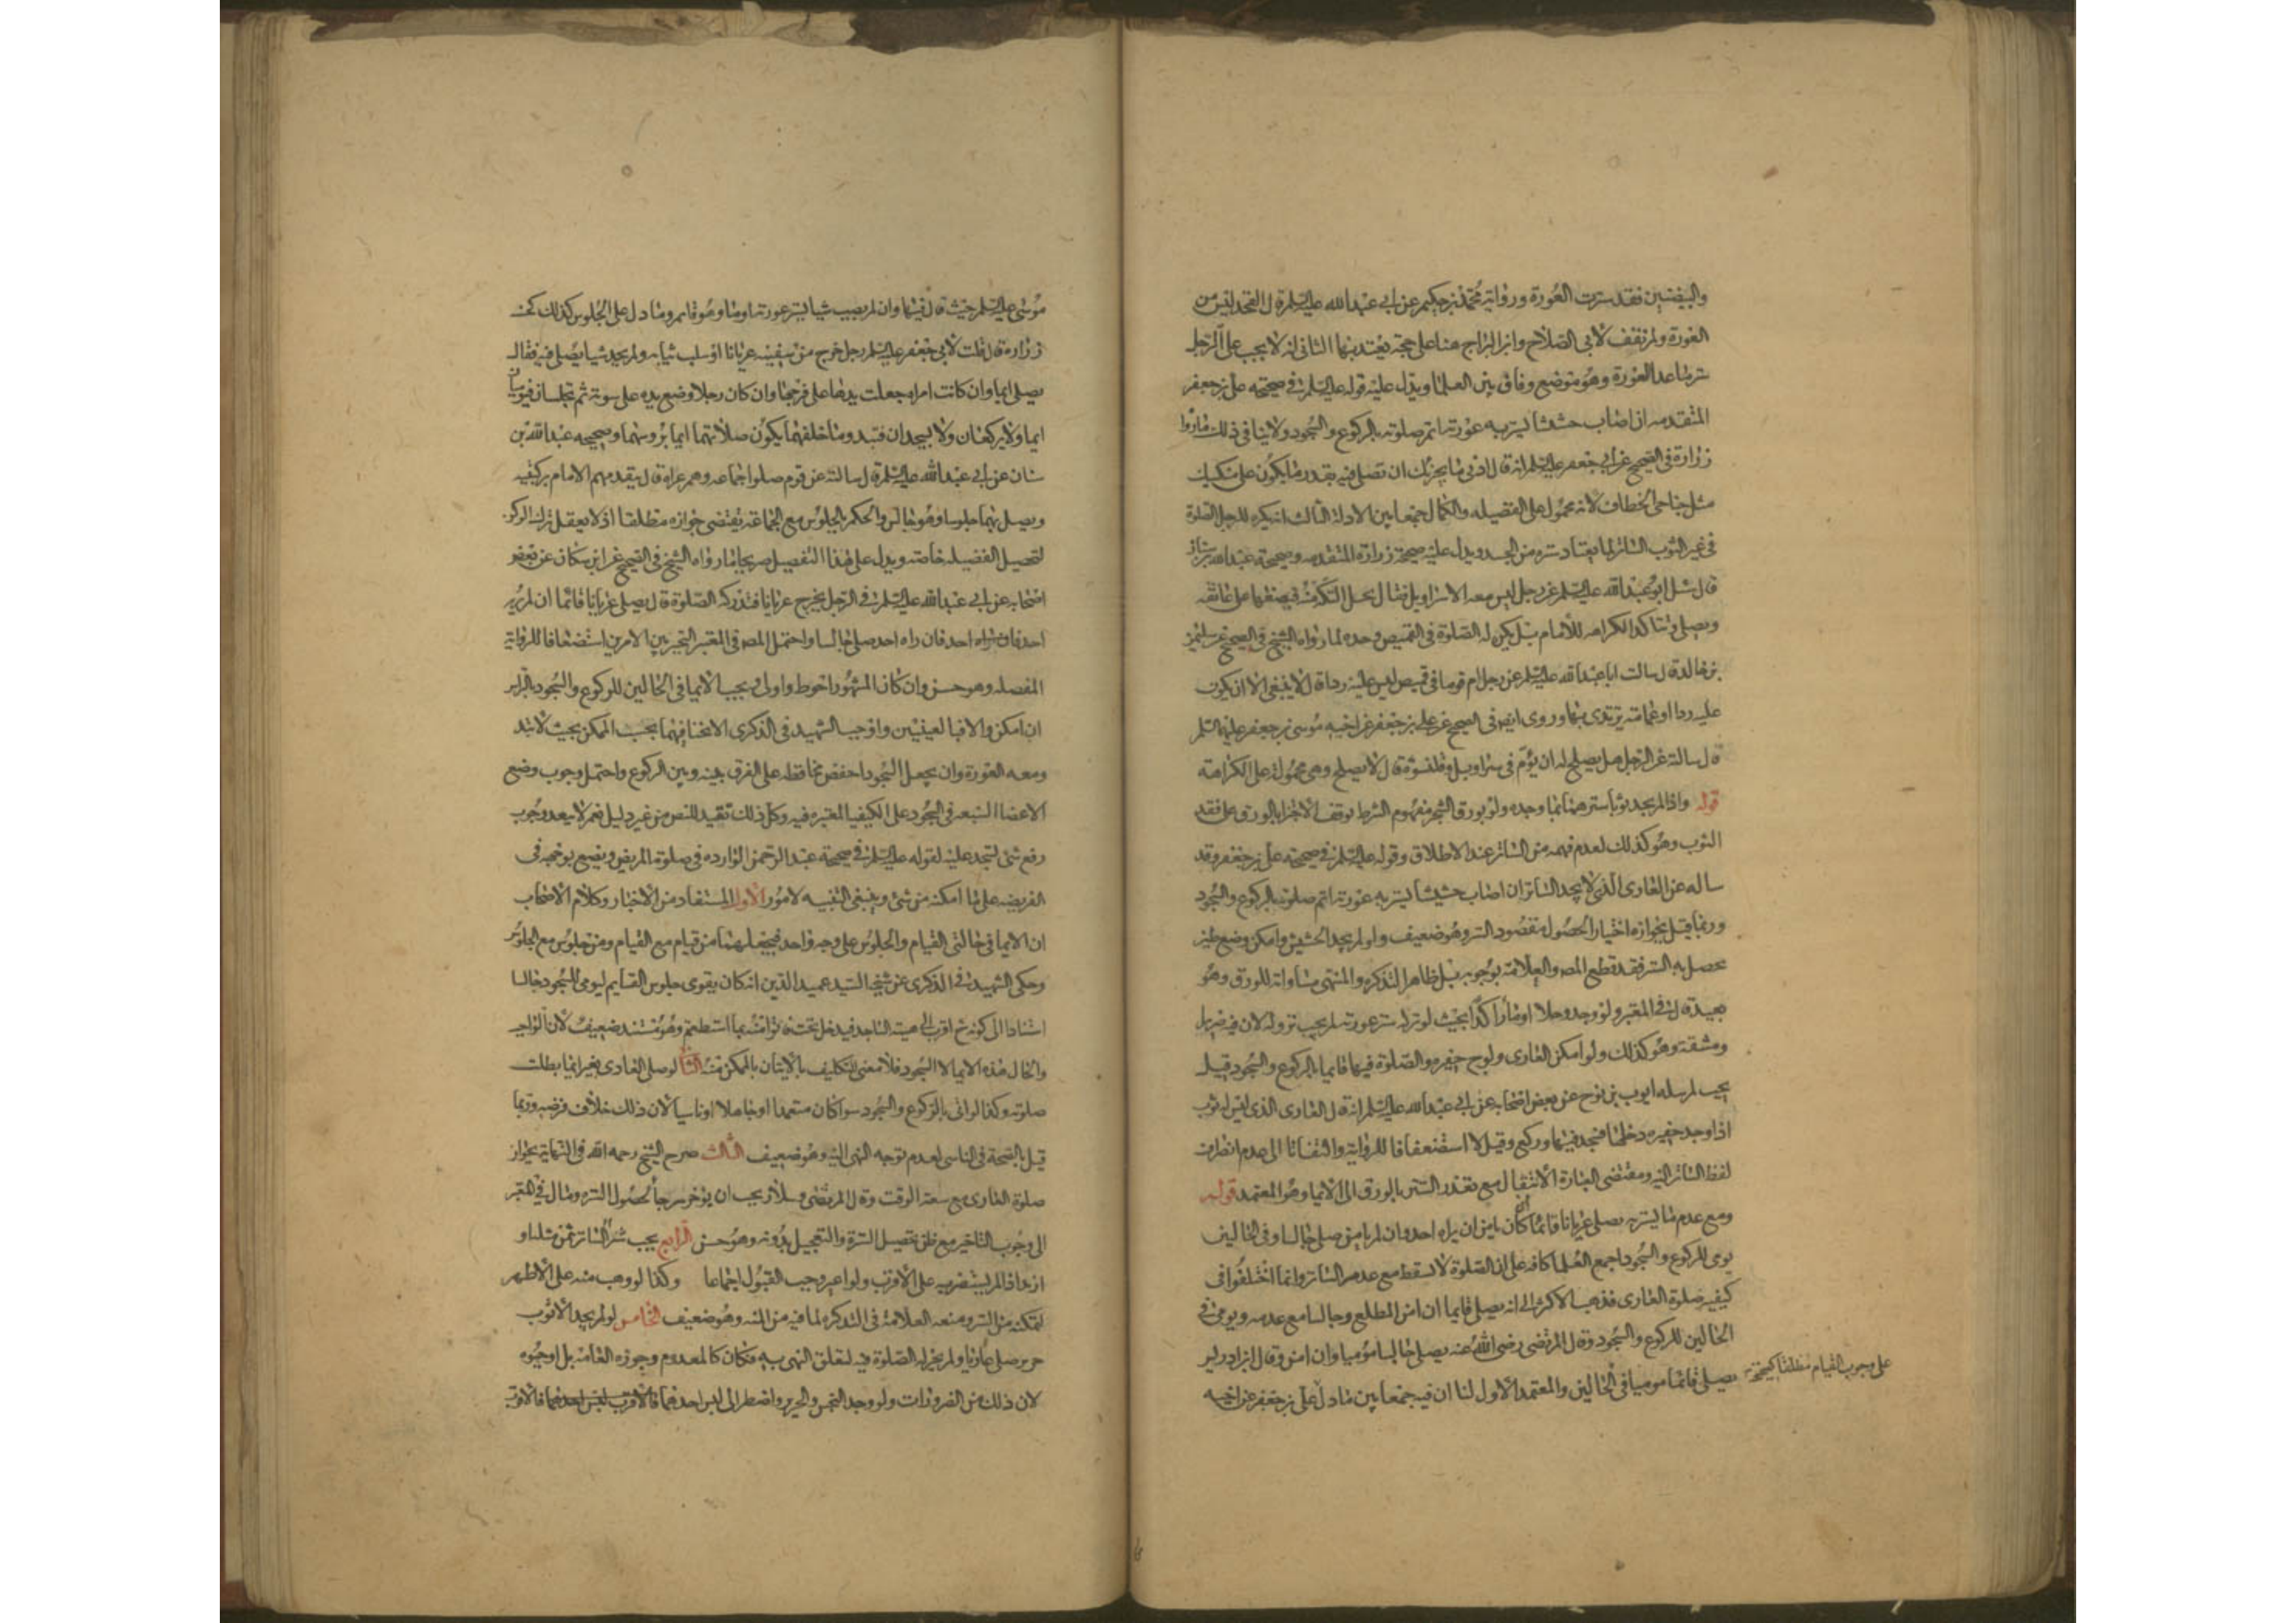 والبيضتين فقد سترت العورة ورواية محمد بن حكيم عن ابي عبد الله عليه السلم قال الفخذ ليس من
العورة ولم نقف لابي الصلاح وابن البراج هنا على حجة يعتد بها الثانى انه لا يجب على الرجل
ستر ما عدا العورة وهو موضع وفاق بين العلما ويدل عليه قوله عليه السلم في صحيحة على بن جعفر
المتقدمه ان اصاب حشيشا يستر به عورته اتم صلوته بالركوع والسجود ولا ينافى ذلك ما رواه
زرارة فى الصحيح عن ابي جعفر عليه السلم انه قال ادنى ما يجزيك ان تصلى فيه بقدر ما يكون على منكبيك
مثل جناحى الخطاف لانه محمول على الفضيله والكمال جمعا بين الادلة الثالث انه يكره للرجل الصلوة
فى غير الثوب الساتر لما يعتاد ستره من الجسد ويدل عليه صحيحة زرارة المتقدمه وصحيحة عبد الله بن سنان
قال سئل ابو عبد الله عليه السلم عن رجل ليس معه الا سراويل فقال يحل التكة منه فيضعها على عاتقه
ويصلى وتتاكد الكراهه للامام بل يكره له الصلوة فى القميص وحده لما رواه الشيخ فى الصحيح عن سليمن
بن خالد قال سالت ابا عبد الله عليه السلم عن رجل ام قوما فى قميص ليس عليه ردا قال لا ينبغى الا ان يكون
عليه ردا او عمامة يرتدى بها وروى ايضا فى الصحيح عن على بن جعفر عن اخيه موسى بن جعفر عليهما السلم
قال سالته عن الرجل هل يصلح له ان يؤم فى سراويل وقلنسوة قال لا يصلح وهى محمولة على الكراهة
قوله واذا لم يجد ثوبا سترهما بما وجده ولو بورق الشجر مفهوم الشرط توقف الاجتزا بالورق على فقد
الثوب وهو كذلك لعدم فهمه من الساتر عند الاطلاق وقوله عليه السلم فى صحيحة على بن جعفر وقد
ساله عن العارى الذى لا يجد الساتر ان اصاب حشيشا يستر به عورته اتم صلوته بالركوع والسجود
وربما قيل بجوازه اختيارا لحصول مقصود الستر وهو ضعيف ولو لم يجد الحشيش وامكن وضع طين
يحصل به الستر فقد قطع المص والعلامة بوجوبه بل ظاهر التذكره والمنتهى مساواته للورق وهو
بعيد قال فى المعتبر ولو وجد وحلا او مآء راكدا بحيث لو نزله ستر عورته لم يجب نزوله لان فيه ضررا
ومشقة وهو كذلك ولو امكن العارى ولوج حفيره والصلوة فيها قايما بالركوع والسجود قيل
يجب لمرسله ايوب بن نوح عن بعض اصحابه عن ابي عبد الله عليه السلم انه قال العارى الذى ليس له ثوب
اذا وجد حفيره دخلها فسجد فيها وركع وقيل لا استضعافا للرواية والتفاتا الى عدم انصراف
لفظ الساتر اليه ومقتضى العبارة الانتقال مع تعذر الستر بالورق الى الايما وهو المعتمد قوله
ومع عدم ما يستره يصلى عريانا قائما ان كان يامن ان يراه احد وان لم يامن صلى جالسا وفى الحالين
يومى للركوع والسجود اجمع العلما كافه على ان الصلوة لا تسقط مع عدم الساتر وانما اختلفوا فى
كيفيه صلوة العارى فذهب الاكثر الى انه يصلى قايما ان امن المطلع وجالسا مع عدمه ويومى فى
الحالين للركوع والسجود وقال المرتضى رضى الله عنه يصلى جالسا موميا وان امن وقال ابن ادريس
يصلى قائما موميا فى الحالين والمعتمد الاول لنا ان فيه جمعا بين ما دل على بن جعفر عن اخيه
على وجوب القيام مطلقا كصحيحة
موسى عليه السلم حيث قال فيها وان لم يصب شيا يستر عورته اوما وهو قايم وما دل على الجلوس كذلك كحسنه
زراره قال قلت لابي جعفر عليه السلم رجل خرج من سفينه عريانا او سلب ثيابه ولم يجد شيا يصلى فيه فقال
يصلى ايما وان كانت امراه جعلت يدها على فرجها وان كان رجلا وضع يده على سوته ثم يجلسان فيوميان
ايما ولا يركعان ولا يسجدان فتبدو ما خلفهما يكون صلاتهما ايما بروسهما وصحيحه عبد الله بن
سنان عن ابي عبد الله عليه السلم قال سالته عن قوم صلوا جماعه وهم عراة قال يتقدمهم الامام بركبتيه
ويصلى بهم جلوسا وهو جالس والحكم بالجلوس مع الجماعة يقتضى جوازه مطلقا اذ لا يعقل ترك الركو
لتحصيل الفضيله خاصه ويدل على هذا التفصيل صريحا ما رواه الشيخ فى الصحيح عن ابن مسكان عن بعض
اصحابه عن ابي عبد الله عليه السلم فى الرجل يخرج عريانا فتدركه الصلوة قال يصلى عريانا قائما ان لم يره
احد فان راه احد صلى جالسا واحتمل المص فى المعتبر التخيير بين الامرين استضعافا للرواية
المفصله وهو حسن وان كان المشهور احوط واولى ويجب الايما فى الحالين للركوع والسجود بالراس
ان امكن والا فبالعينين واوجب الشهيد فى الذكرى الانحنا فيهما بحسب الممكن بحيث لا تبد
ومعه العورة وان يجعل السجود اخفض محافظه على الفرق بينه وبين الركوع واحتمل وجوب وضع
الاعضا السبعه فى السجود على الكيفيا المعتبره فيه وكل ذلك تقيد للنص من غير دليل نعم لا يبعد وجوب
رفع شى لتسجد عليه لقوله عليه السلم فى صحيحة عبد الرحمن الوارده فى صلوة المريض ويضع بوجهه فى
الفريضه على ما امكنه من شى وينبغى التنبيه لامور الاول المستفاد من الاخبار وكلام الاصحاب
ان الايما فى حالتى القيام والجلوس على وجه واحد فيجعلهما من قيام مع القيام ومن جلوس مع الجلوس
وحكى الشهيد فى الذكرى عن شيخه السيد عميد الدين انه كان يقوى جلوس القايم ليومى للسجود جالسا
استنادا الى كونه ح اقرب الى هيئة الساجد فيدخل تحت فاتوا منه بما استطعتم وهو مستند ضعيف لان الواجب
والحال هذه الايما لا السجود فلا معنى للتكليف بالايتان بالممكن منه الثا لو صلى العارى بغير ايما بطلت
صلوته وكذا لو اتى بالركوع والسجود سوا كان متعمدا او جاهلا او ناسيا لان ذلك خلاف فرضه وربما
قيل بالصحة فى الناسى لعدم توجه النهى اليه وهو ضعيف الثالث صرح الشيخ رحمه الله فى النهاية بجواز
صلوة العارى مع سعة الوقت وقال المرتضى وسلار يجب ان يوخر رجآ لحصول الستره ومال فى المعتبر
الى وجوب التاخير مع ظن تحصيل السترة والتعجيل بدونه وهو حسن الرابع يجب شرآ الساتر بثمن مثله او
ازيد اذا لم يستضر به على الاقرب ولو اعير وجب القبول اجماعا وكذا لو وهب منه على الاظهر
لتمكنه من الستر ومنعه العلامة فى التذكره لما فيه من المنه وهو ضعيف الخامس لو لم يجد الا ثوب
حرير صلى عاريا ولم يجز له الصلوة فيه لتعلق النهى به فكان كالمعدوم وجوزه العامه بل اوجبوه
لان ذلك من الضرورات ولو وجد النجس والحرير واضطر الى لبس احدهما فالاقرب لبس احدهما فالاقرب